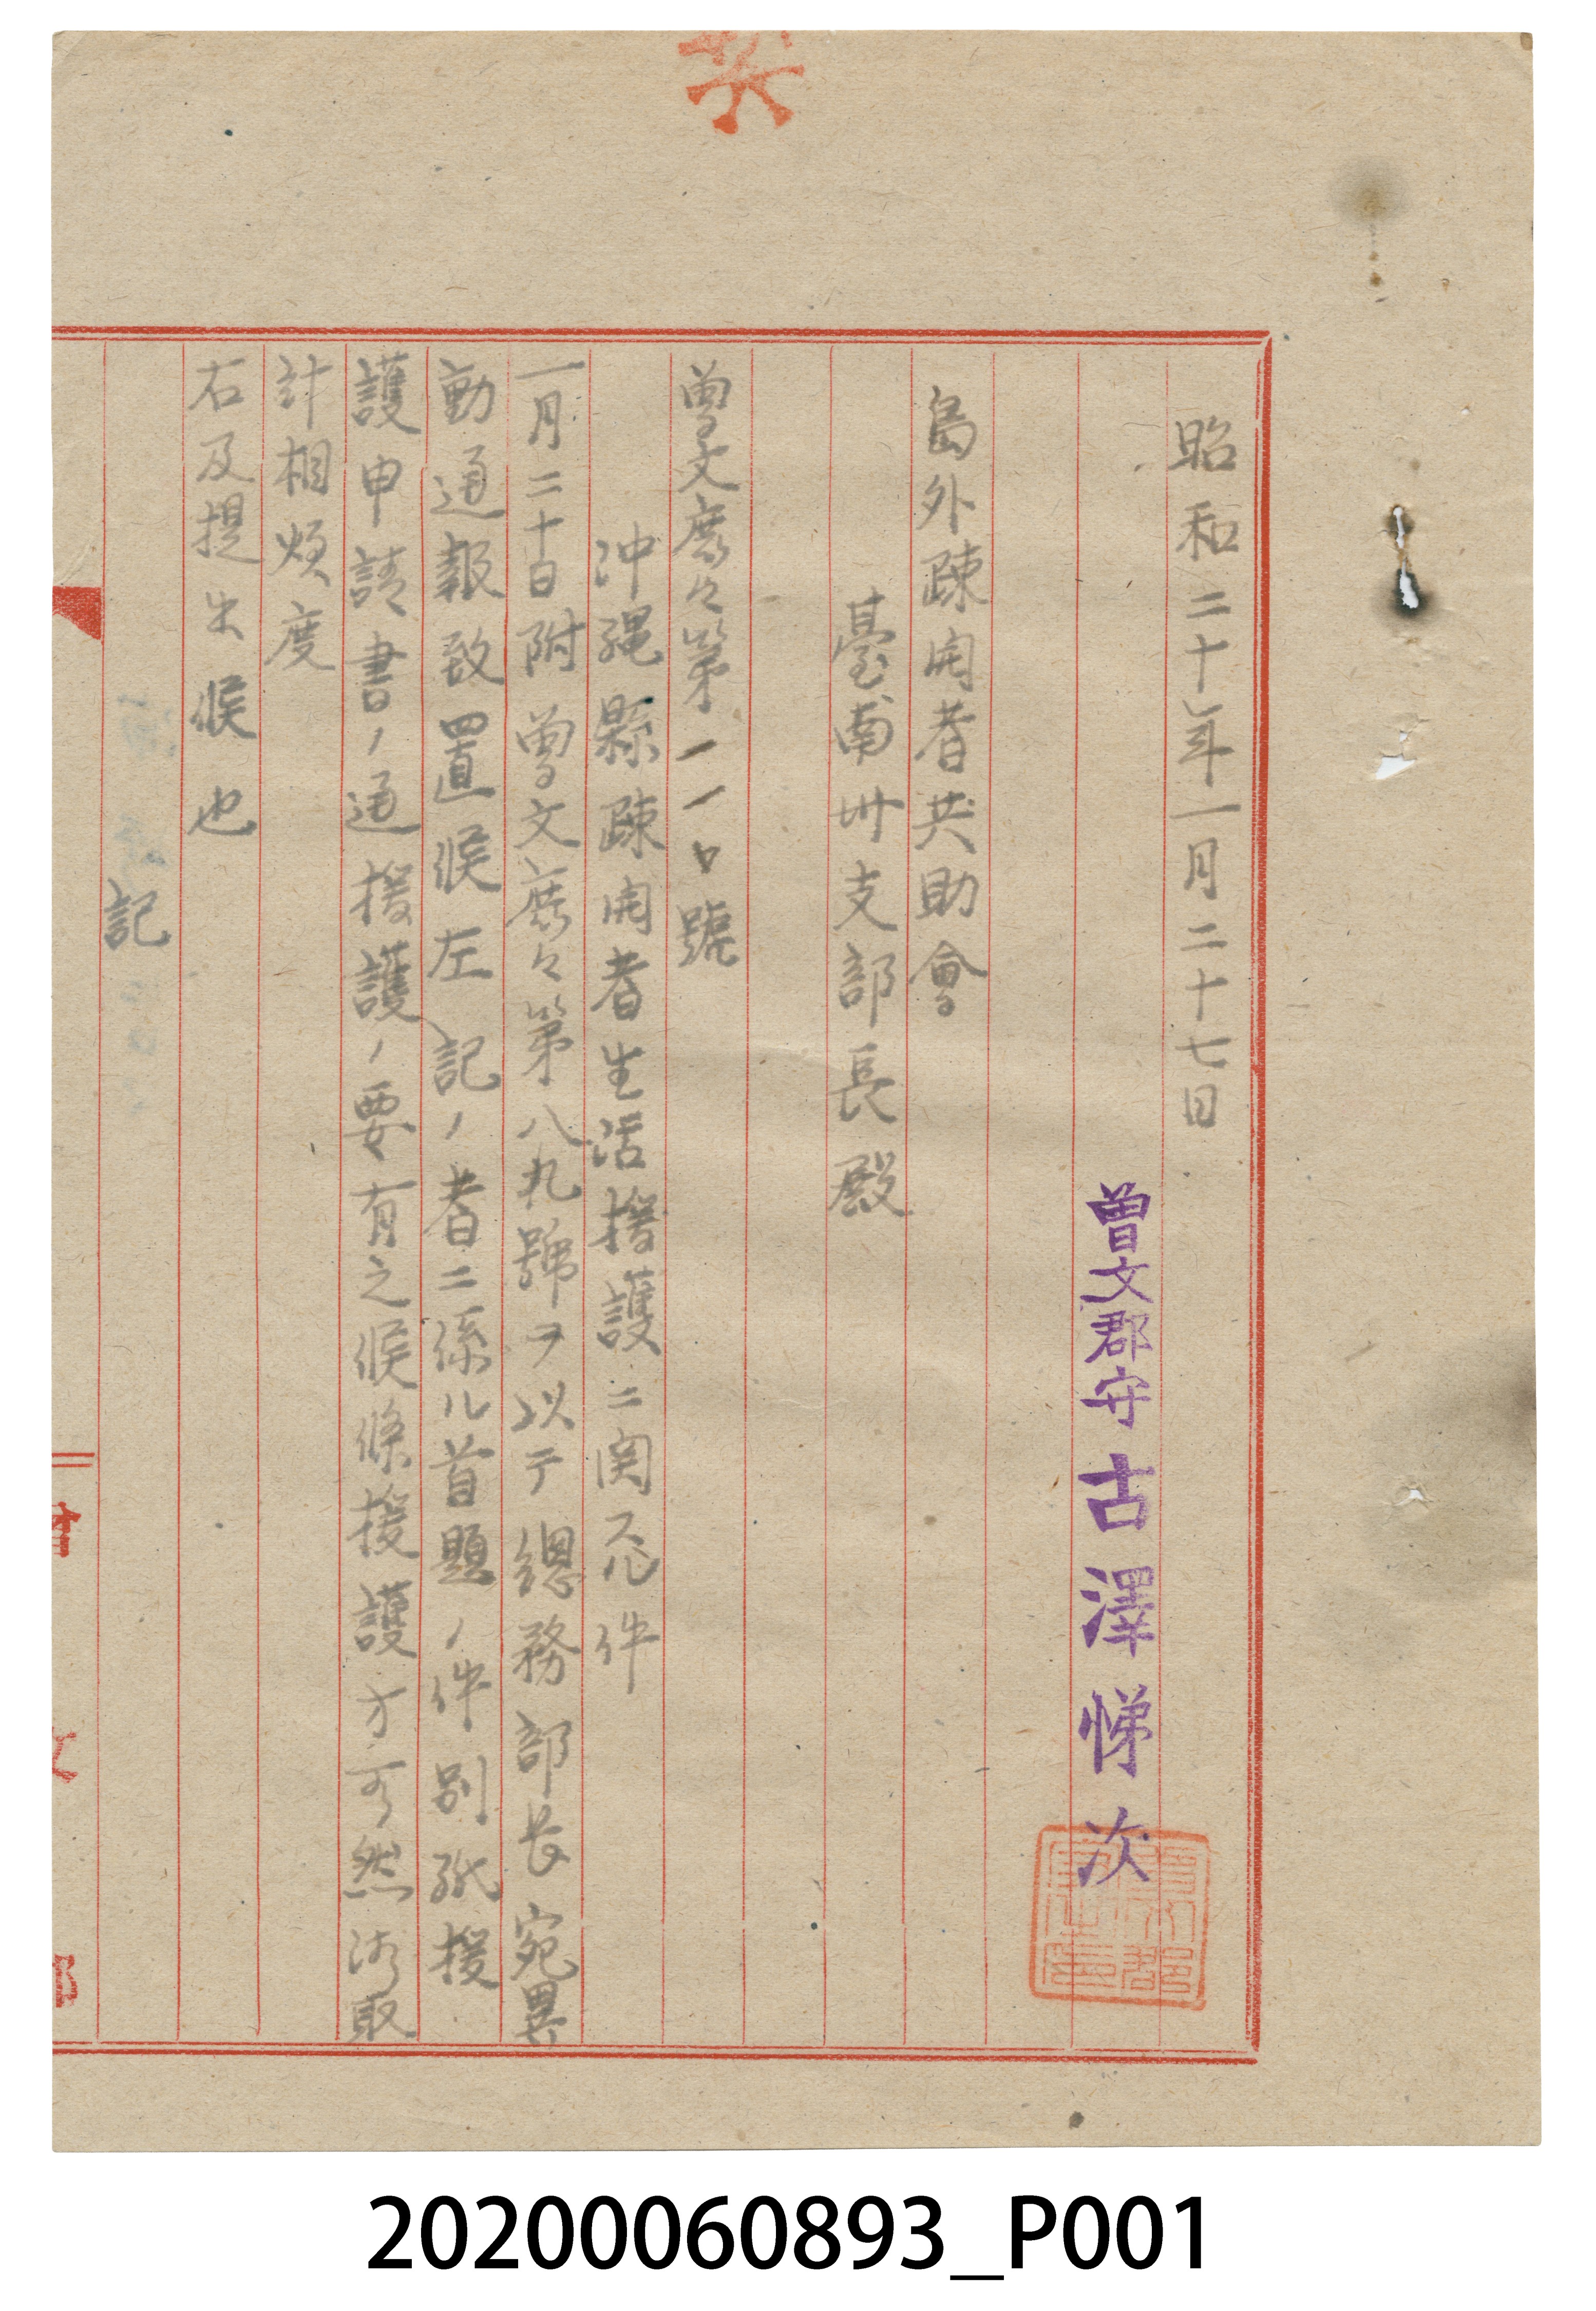 昭和二十年一月二十七日
曽文郡守 古澤悌次
島外疎開者共助會
臺南州支部長殿
曽文庶々第一一〇號
沖縄縣疎開者生活援護ニ関スル件
一月二十日附曽文庶々第八九號ヲ以テ總務部長宛異
動通報致置候左記ノ者ニ係ル首題ノ件別紙援
護申請書ノ通援護ノ要有之候條援護方可然御取
計相煩度
右及提出候也
記
20200060893_P001